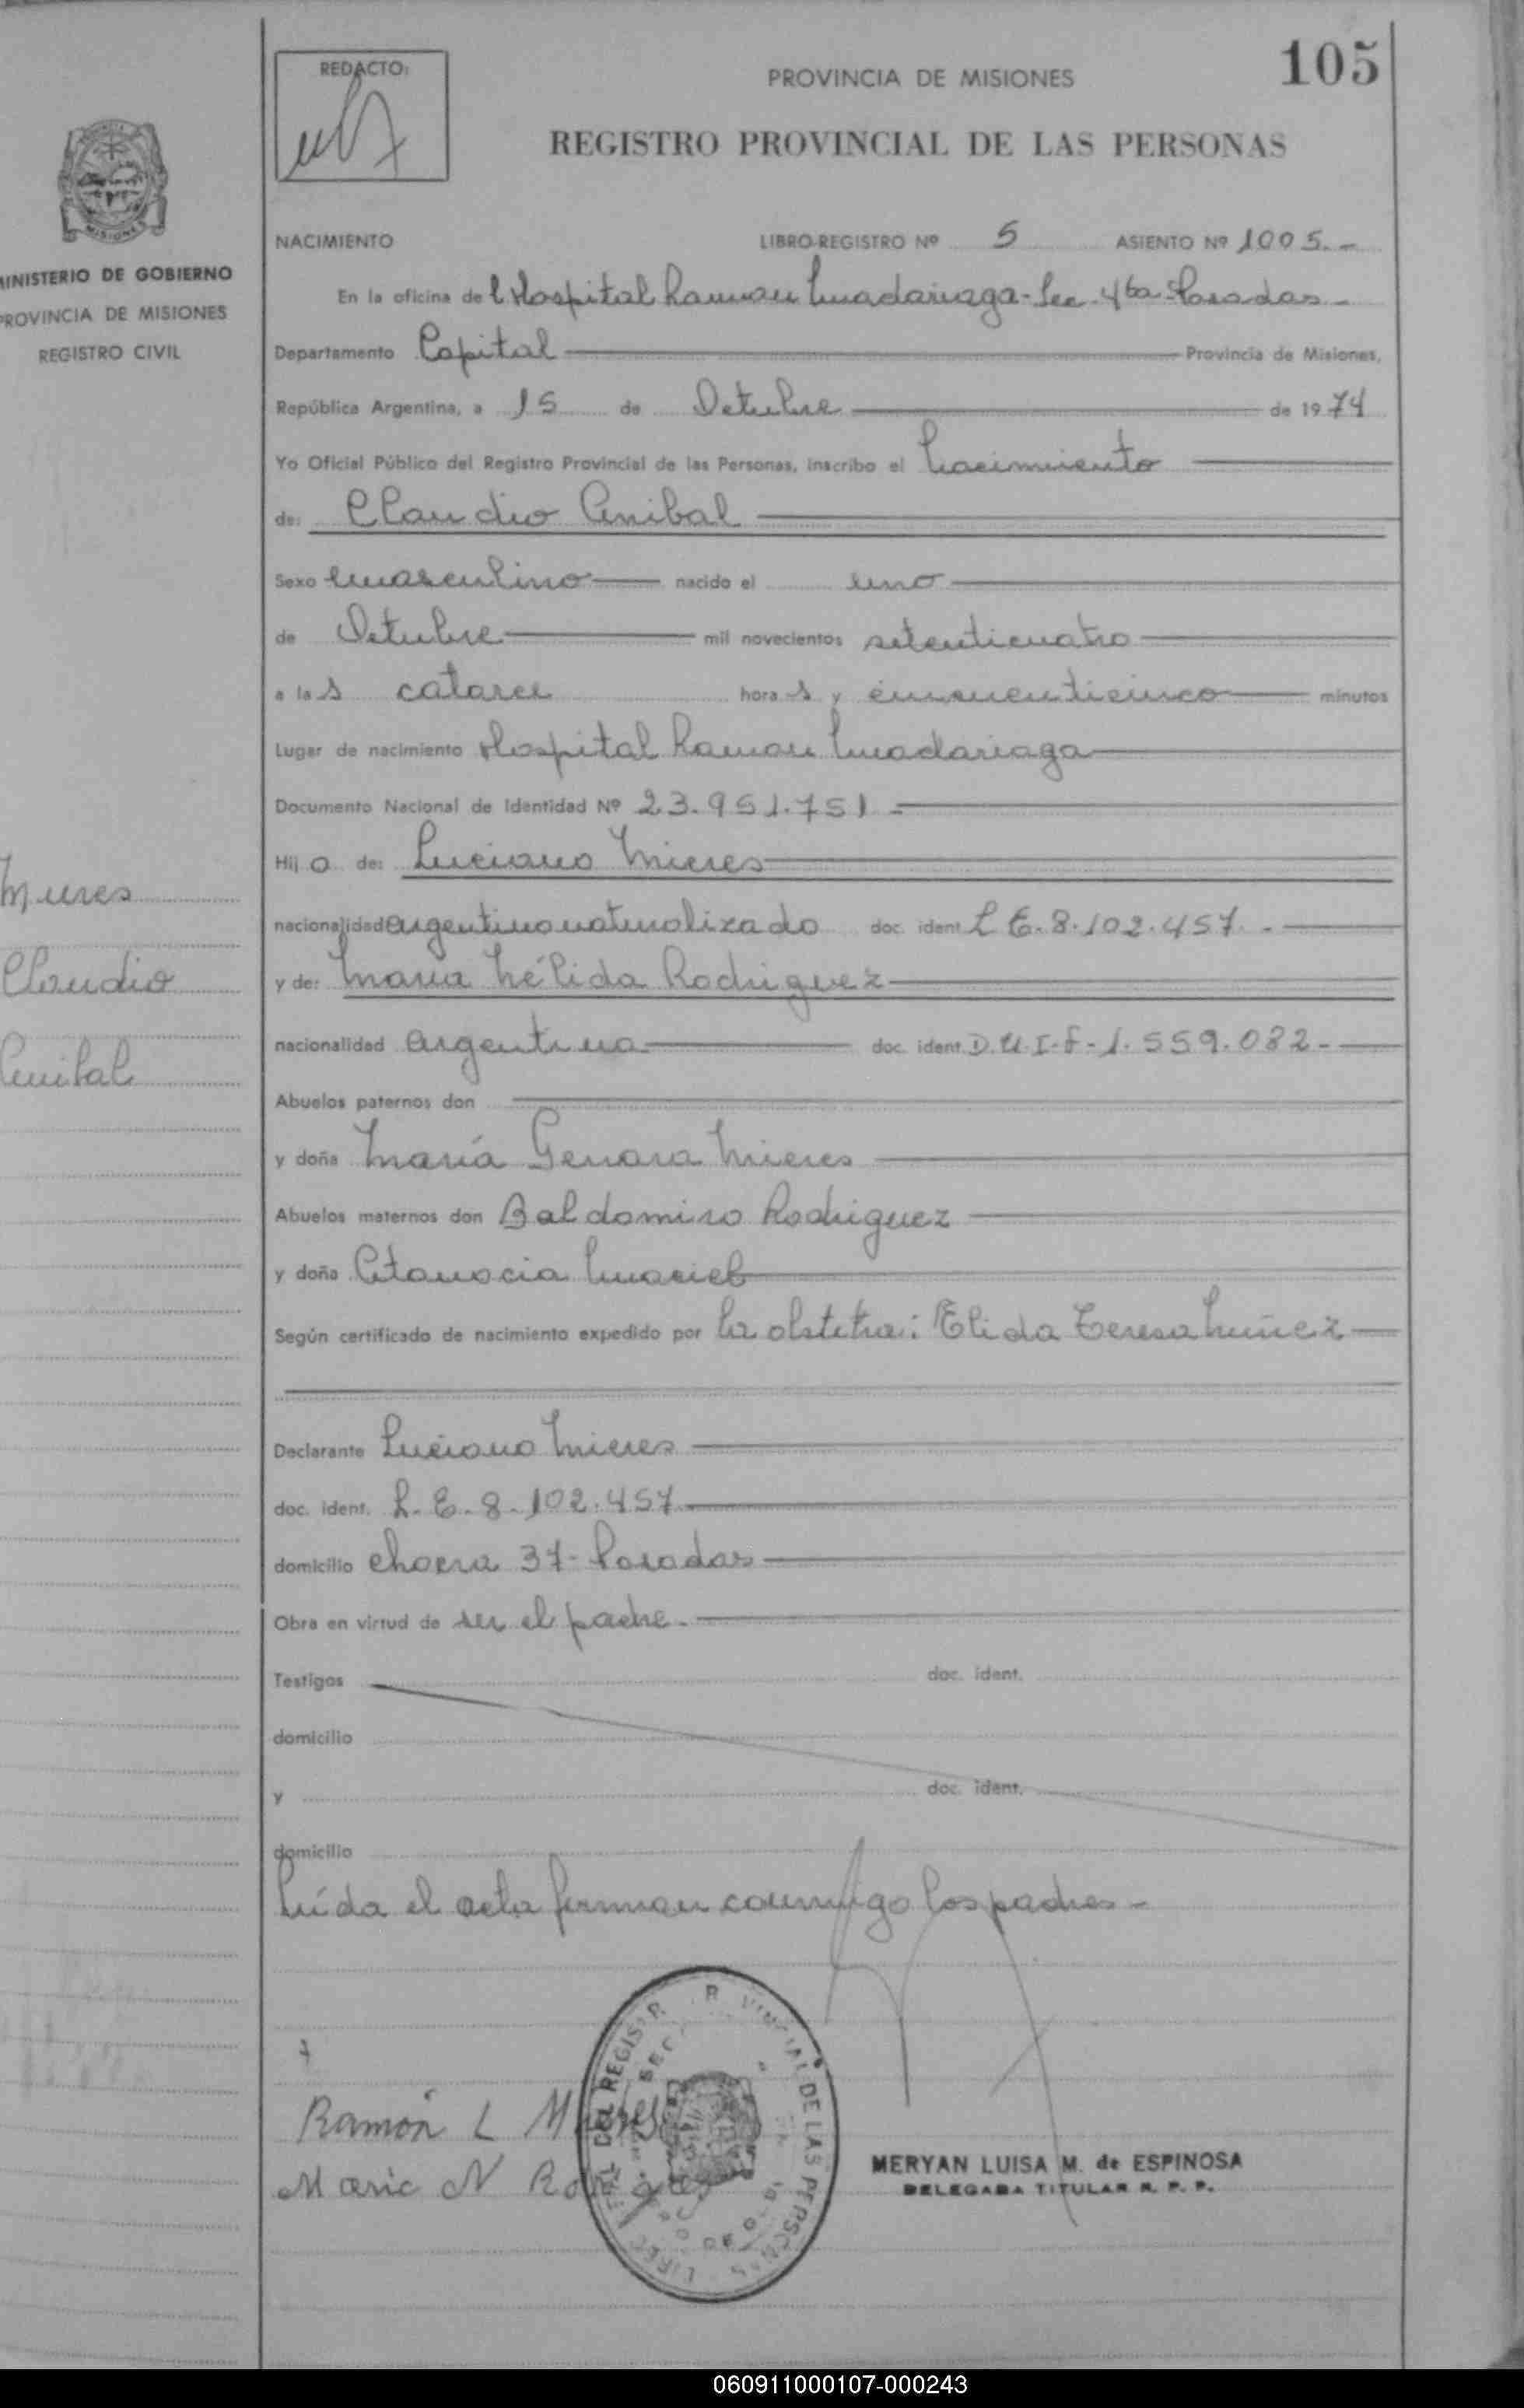 105
REDACTO:
PROVINCIA DE MISIONES
REGISTRO PROVINCIAL DE LAS PERSONAS
MISIONES
MINISTERIO DE GOBIERNO
PROVINCIA DE MISIONES
REGISTRO CIVIL
NACIMIENTO LIBRO-REGISTRO Nº 5 ASIENTO Nº 1005.-
En la oficina del Hospital Ramon Madariaga - Sec. 4ta Posadas -
Departamento Capital Provincia de Misiones,
República Argentina, a 15 de Octubre de 1974
Yo Oficial Público del Registro Provincial de las Personas, inscribo el Nacimiento
de: Claudio Anibal
Sexo masculino nacido el uno
de Octubre mil novecientos setenticuatro
a las catorce horas y cincuenticinco minutos
Lugar de nacimiento Hospital Ramon Madariaga
Documento Nacional de Identidad Nº 23.951.751 -
Hijo de: Luciano Mieres
nacionalidad argentino naturalizado doc. ident. L E. 8.102.457. -
y de: Maria Nélida Rodriguez
nacionalidad argentina doc. ident. D.U.I-F-1.559.082 -
Abuelos paternos don
y doña María Genara Mieres
Abuelos maternos don Baldomiro Rodriguez
y doña Atanacia Maciel
Según certificado de nacimiento expedido por la obstetra: Elida Teresa Nuñez
Declarante Luciano Mieres
doc. ident. L. E. 8. 102.457
domicilio chacra 37 - Posadas
Obra en virtud de ser el padre.
Testigos doc. ident.
domicilio
y doc. ident.
domicilio
Leída el acta firman conmigo los padres -
Mieres
Claudio
Anibal
Ramón L Mieres
Maria N Rodriguez
DEL REGISTR DE LAS PERSONAS
MERYAN LUISA M. de ESPINOSA
DELEGADA TITULAR R. P. P.
060911000107-000243